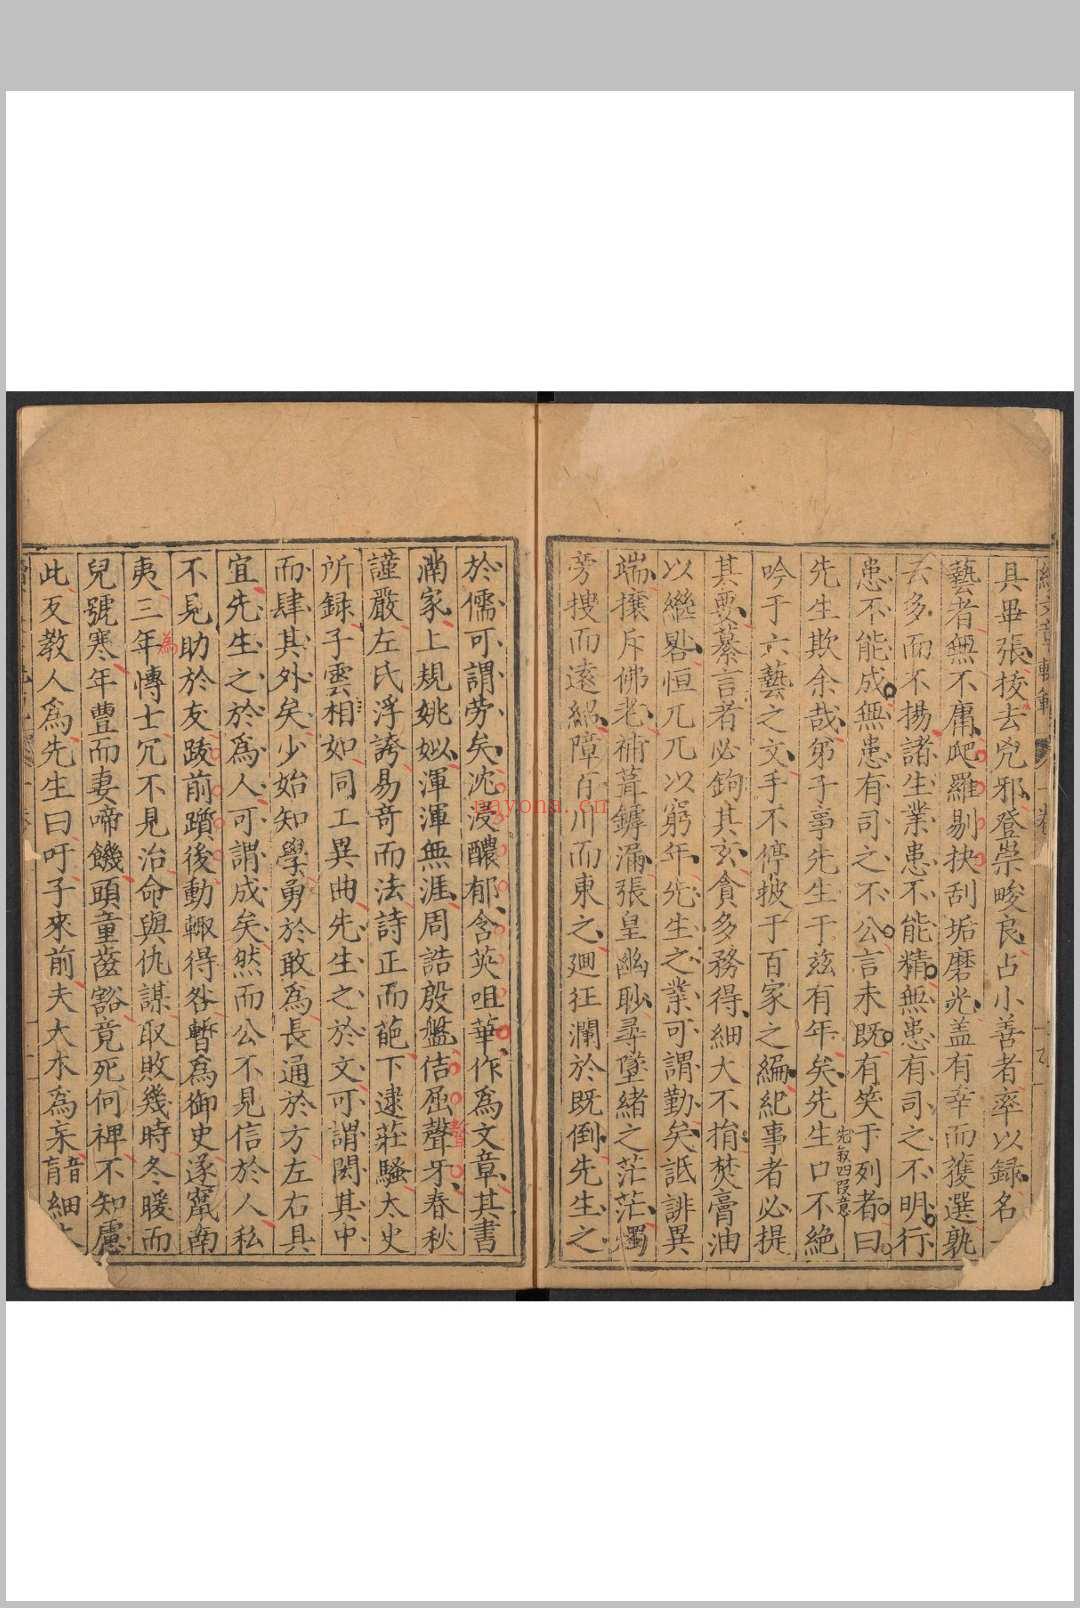 具畢張拔去兇邪登崇畯良占小善者率以録名一
藝者無不庸爬羅剔抉刮垢磨光盖有幸而獲選孰
云多而不揚諸生業患不能精無患有司之不明行
患不能成無患有司之不公言未既有笑于列者曰
先生欺余哉弟子事先生于茲有年矣先生口不絶
先叙四段意
吟于六藝之文手不停披于百家之編紀事者必提
其要纂言者必鉤其玄貪多務得細大不捐焚膏油
以繼晷恒兀兀以窮年先生之業可謂勤矣詆誹異
端攘斥佛老補苴罅漏張皇幽眇尋墜緒之茫茫獨
旁搜而遠紹障百川而東之廻狂瀾於既倒先生之
於儒可謂勞矣沈浸醲郁含英咀華作為文章其書
滿家上規姚姒渾渾無涯周誥殷盤佶屈聲牙春秋
聱
謹嚴左氏浮誇易奇而法詩正而葩下逮莊騷太史
所録子雲相如同工異曲先生之於文可謂閎其中
而肆其外矣少始知學勇於敢為長通於方左右具
宜先生之於爲人可謂成矣然而公不見信於人私
不見助於友跋前躓後動輙得咎暫爲御史遂竄南
夷三年博士冗不見治命與仇謀取敗幾時冬暖而
為
兒號寒年豊而妻啼饑頭童齒豁竟死何裨不知慮
此反教人爲先生曰吁子來前夫大木爲杗音盲細
nayona.cn